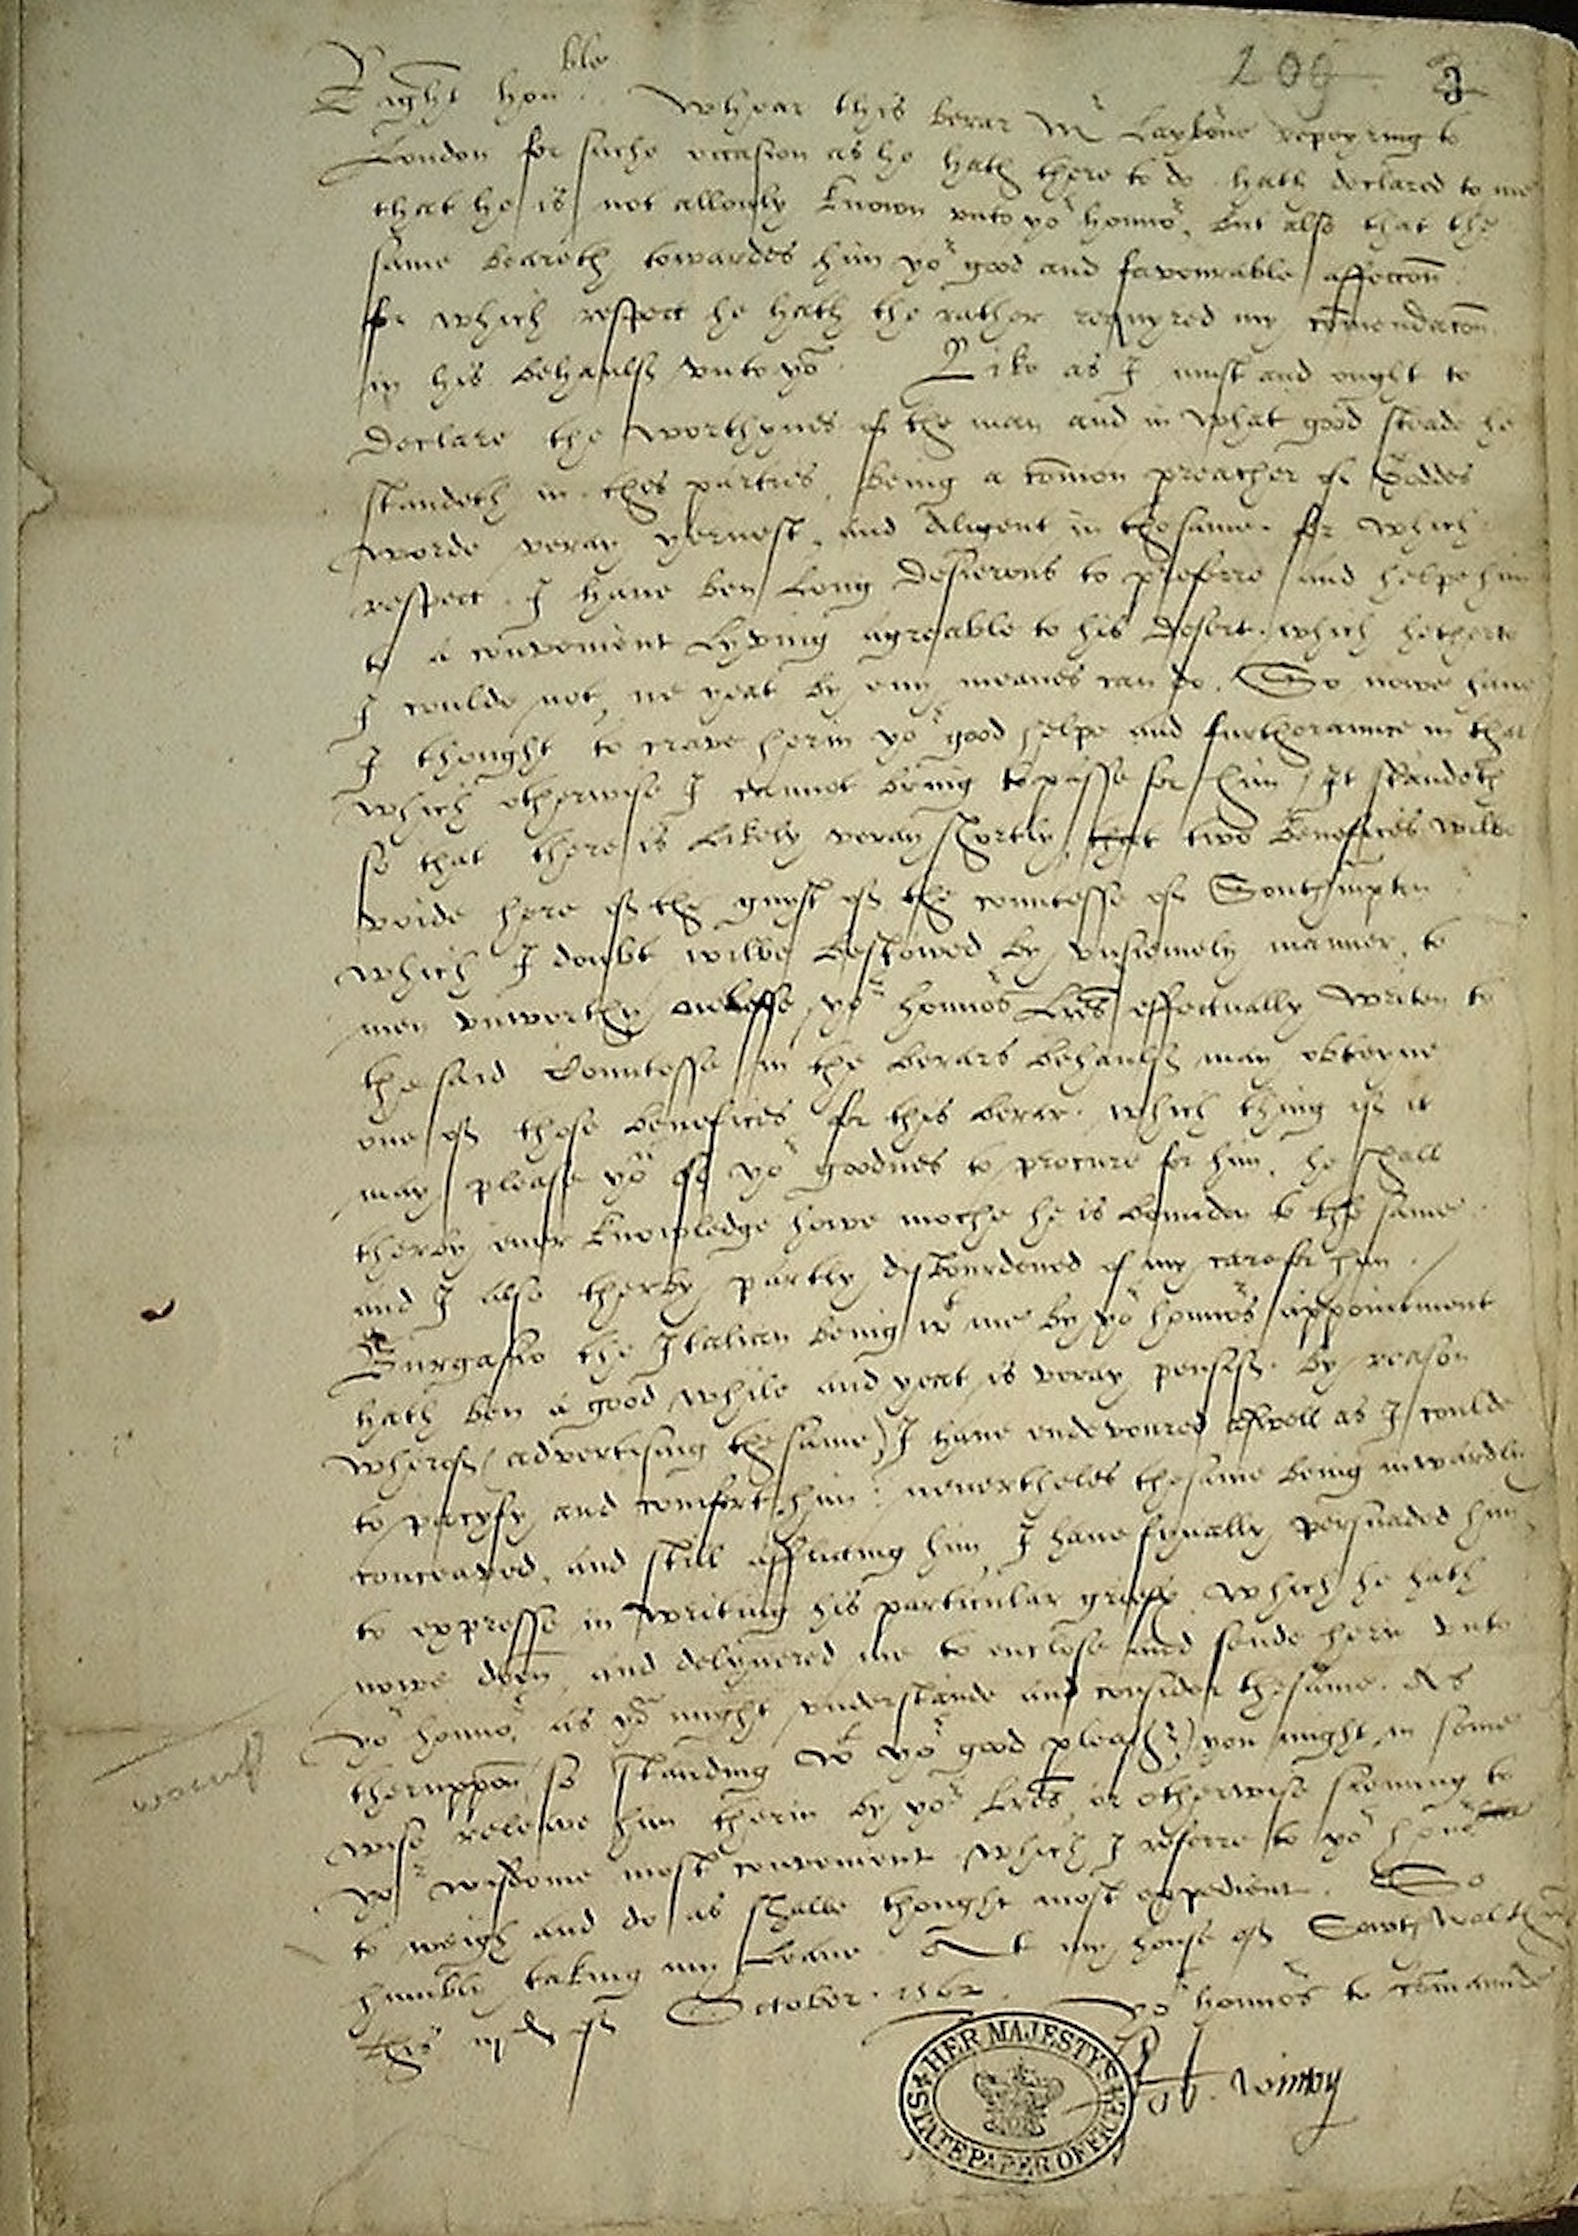 209 3
Right hon ble. Whear this berar Mr Laykone repeyring to
London for suche occasion as he hath there to do hath declared to me
that he is not allonly known vnto yor honnor, but also that the
same beareth towardes him yor good and favourable affeccon
for which respect he hath the rather requyred my comendacon
in his behaulf vnto yow. Like as I must and ought to
declare the worthynes of the man and in what good steade he
standeth in thes parties, being a comon preacher of Goddes
worde veray yernest, and diligent in the same. for which
respect I haue ben long desierous to preferre and helpe him
to a convenient lyving agreable to his desert, which hetherto
I coulde not, ne yeat by eny meanes can do. So nowe haue
I thought to crave herin yor good helpe and furtheraunce in that
which otherwise I cannot bring to passe for him / It standeth
so that there is likely veray shortly that two benefices wilbe
voide here of the guyft of the countesse of Southampton
which I doubt wilbe bestowed by vnsiemely manner, to
men vnworthy onlesse yor honnors Lres effectually writen to
the said Countesse in the berars behaulf may obteyne
one of those benefices for this berar. which thing if it
may please yor of yor goodnes to procure for him, he shall
therby euer knowledge howe moche he is bounden to the same
and I also therby partly disbourdened of my care for him.
Burgasio the Italian being wt me by yor honnors appointment
hath ben a good while and yeat is veray pensif. by reason
wherof (advertising the same) I haue endevoured aswell as I coulde
to pacyfy and comfort him: neuertheles the same being inwardly
conceaved, and still afflicting him, I haue fynally perswaded him
to expresse in writing his particular grieff, which he hath
nowe doen, and delyuered me to enclose and sende herin vnto
yor honnor, as yow might vnderstande and consider the same. As
theruppon so standing wt yor good pleasr) you might in some
wise releiwe him therin by yor Lres, or otherwise sieming to
yor wisdome most convenient which I referre to yor honor
to weigh and do as shalbe thought most expedient. So
humble taking my Leave. At my house of Sowth Waltham
this iijd of October. 1562. yor honnors to comaunde
Rob. winton
HER MAJESTY'S STATE PAPER OFFICE